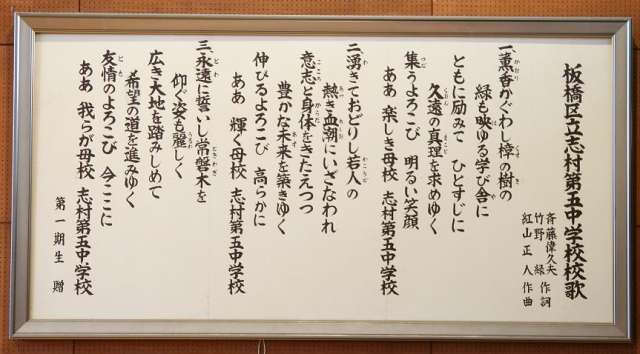 板橋区立志村第五中学校校歌
斉藤偉久夫
竹野 緑 作詞
紅山正人 作曲
一、薫香かぐわし樟の樹の
緑も映ゆる学び舎に
ともに励みて ひとすじに
久遠の真理を求めゆく
集うよろこび 明るい笑顔
ああ 楽しき母校 志村第五中学校
二、湧きておどりし若人の
熱き血潮にいざなわれ
意志と身体をきたえつつ
豊かな未来を築きゆく
伸びるよろこび 高らかに
ああ 輝く母校 志村第五中学校
三、永遠に誓いし常磐木を
仰ぐ姿も麗しく
広き大地を踏みしめて
希望の道を進みゆく
友情のよろこび 今ここに
ああ 我らが母校 志村第五中学校
第一期生 贈